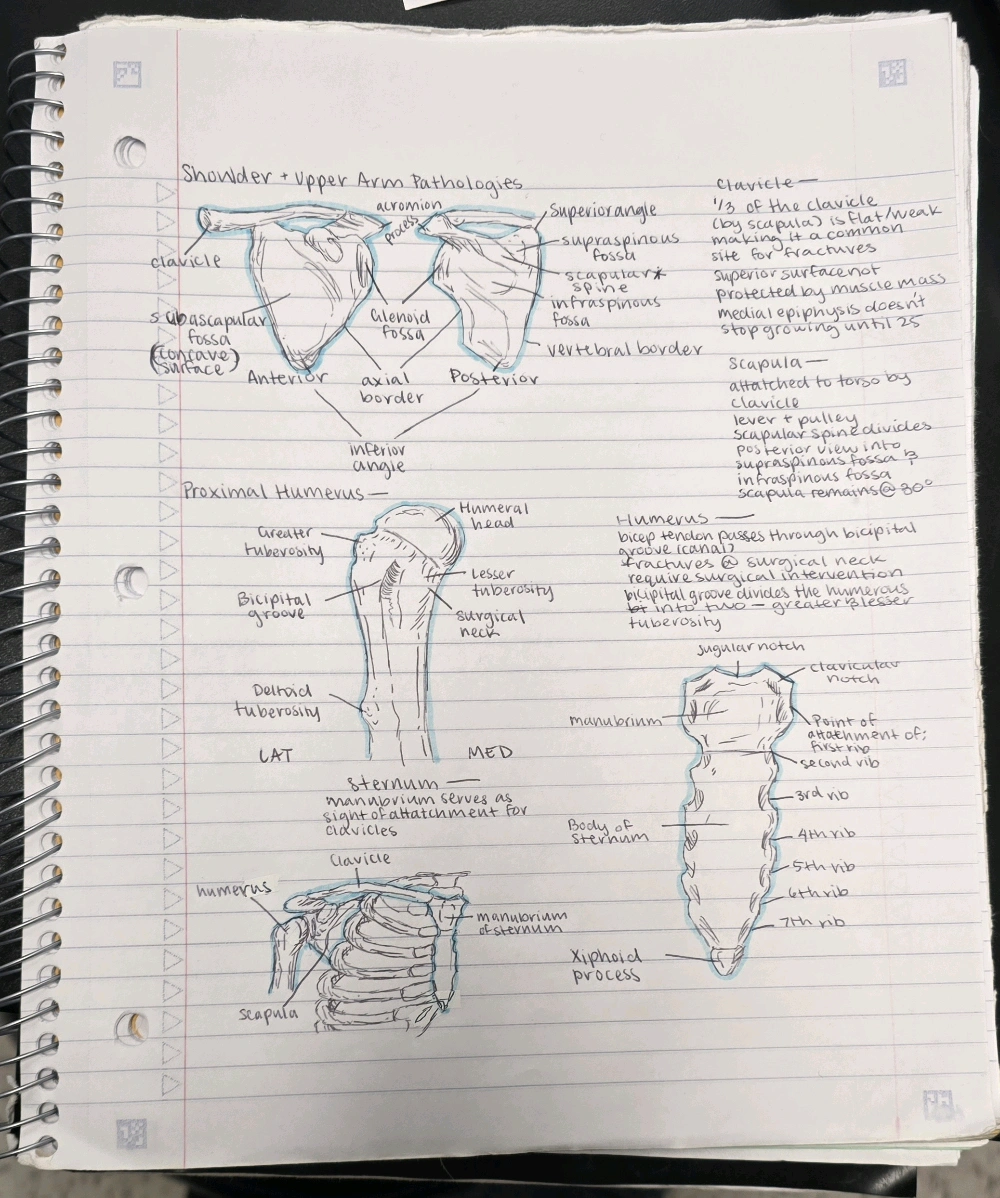 Shoulder + Upper Arm Pathologies
acromion
process
clavicle
subascapular
fossa
(concave)
(surface)
Glenoid
fossa
Anterior
axial
border
Posterior
inferior
angle
superior angle
supraspinous
fossa
scapular*
spine
infraspinous
fossa
vertebral border
Clavicle—
1/3 of the clavicle
(by scapula) is flat/weak
making it a common
site for fractures
superior surface not
protected by muscle mass
medial epiphysis doesn't
stop growing until 25
Scapula—
attatched to torso by
clavicle
lever + pulley
scapular spine divides
posterior view into
supraspinous fossa &
infraspinous fossa
scapula remains @ 30°
Proximal Humerus—
Humeral
head
Greater
tuberosity
Lesser
tuberosity
Bicipital
groove
surgical
neck
Deltoid
tuberosity
LAT
MED
Humerus—
bicep tendon passes through bicipital
groove (canal)
fractures @ surgical neck
require surgical intervention
bicipital groove divides the humerous
into two — greater & lesser
tuberosity
sternum—
manubrium serves as
sight of attatchment for
clavicles
jugular notch
clavicular
notch
manubrium
Point of
attatchment of;
first rib
second rib
3rd rib
Body of
sternum
4th rib
5th rib
6th rib
7th rib
Xiphoid
process
Clavicle
humerus
manubrium
of sternum
scapula